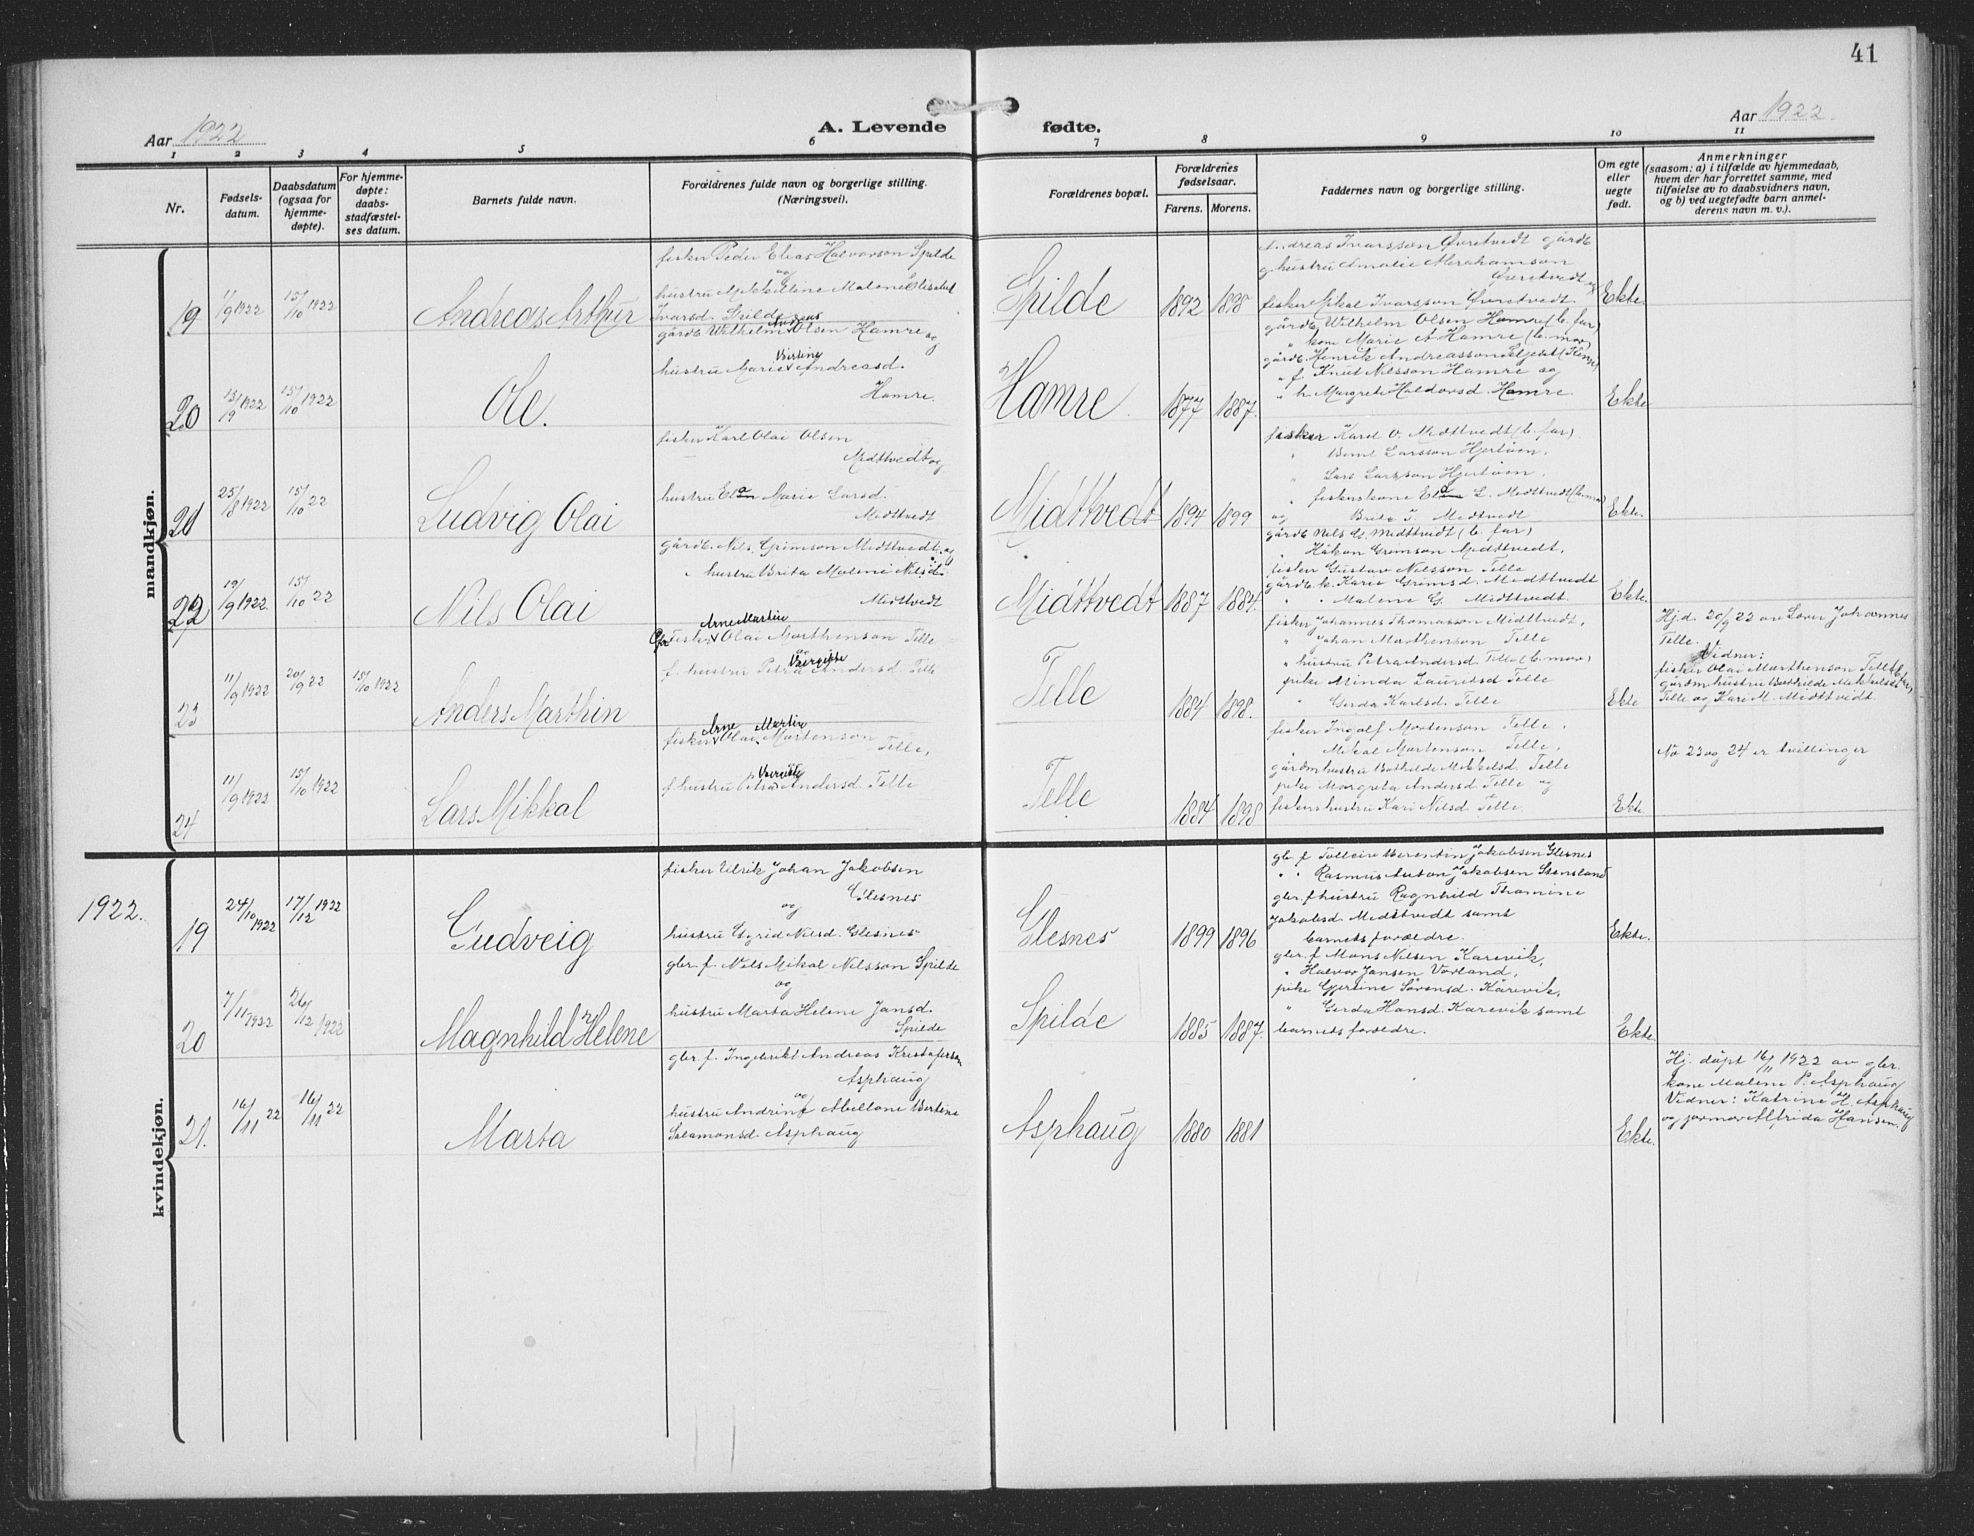 41
Aar 1922
A. Levende fødte.
Aar 1922.
1 2 3 4 5 6 7 8 9 10 11
Nr.
Fødsels-
datum.
Daabsdatum
(ogsaa for
hjemme-
døpte).
For hjemme-
døpte:
daabs-
stadfæstel-
ses datum.
Barnets fulde navn.
Forældrenes fulde navn og borgerlige stilling.
(Næringsvei).
Forældrenes bopæl.
Forældrenes
fødselsaar.
Farens. Morens.
Faddernes navn og borgerlige stilling.
Om egte
eller
uegte
født.
Anmerkninger
(saasom: a) i tilfælde av hjemmedaab,
hvem der har forrettet samme, med
tilføielse av to daabsvidners navn,
og b) ved uegtefødte barn anmel-
derens navn m. v.).
mandkjøn.
19
11/9 1922
15/10 1922
Andreas Arthur
fisker Peder Elias Halvorson Spilde
og
hustru Mikkeline Malene Elisabet
Ivarsd. Spilde
Spilde
1892
Andreas Ivarsson Øvretvedt gårdb.
g hustru Amalie Abrahamson
Øvretvedt og
fisker Mikal Ivarsson Øvretvedt.
Ekte
20
15/10 1922
Ole.
gårdb. Wilhelm Olsen Hamre og
hustru Marie Bertine Andreasd.
Hamre.
Hamre.
1877 1887.
gårdb. Wilhelm Olsen Hamre (b. far)
" kone Marie A Hamre (b. mor)
gårdb. Henrik Andreasson
" f. Knut Nilsson Hamre og
" h. Margrete Haldorsd. Hamre.
Ekte
21
25/8 1922
15/10 22
Ludvig Olai
fisker Karl Olai Olsen
Midttvedt og
hustru Marie Larsd.
Midttvedt
Midttvedt
1894 1899
fisker Karl O. Midttvedt (b. far)
" Bernt Larsson Hjertøen,
" Lars Larsson Hjertøen,
" fiskerskone L. Midttvedt (b. mor)
og Brita J. Midttvedt
Ekte.
22
19/9 1922.
15/10 22
Nils Olai
gårdb. Nils Grimson Midttvedt og
" hustru Brita Malene Nilsd.
Midttvedt
Midttvedt
1887 1884.
gårdb Nils G. Midttvedt (b. far)
" Håkon Grimson Midttvedt,
fisker Gustav Nilsson Telle
gårdb. k. Karie Grimsd. Midttvedt
" " Malene G. Midttvedt.
Ekte.
23
11/9 1922
20/9 22
15/10 1922
Anders Marthin
Arne Martin
fisker Olai Marthenson Telle
f. hustru Petra Vergitte Andersd. Telle
Telle
1884 1898.
fisker Johannes Thomasson Midttvedt,
" Johan Marthenson Telle
" hustru Petra Andersd. Telle (b. mor)
pike Minda Lauritsd Telle
" Gerda Karlsd. Telle
Ekte
Hj.d. 20/9 22 av Lærer Johannes
Telle. Vidner:
fisker Olai Marthenson Telle (b. far)
gårdmhustru Bothilde Mikkelsd.
Telle og Kari M. Midttvedt
24
11/9 1922
15/10 1922
Lars Mikkal
Arne Martin
fisker Olai Martenson Telle,
f. hustru Petra Andersd. Telle
Telle
1884 1898
fisker Ingolf Mortenson Telle,
" Mikal Mortenson Telle,
gårdmhustru Bothilde Mikkelsd. Telle
pike Margreta Andersd. Telle og
fiskershustru Kari Nilsd Telle.
Ekte.
No 23 og 24 er tvillinger
kvindekjøn.
1922.
19
24/10 1922
17/12 1922
Gudveig
fisker Ulrik Johan Jakobsen
Glesnes
og
hustru Sigrid Nilsd. Glesnes
Glesnes
1899 1896
gbr. f Tolleiv Berentin Jakobsen Glesnes
" " Rasmus Anton Jakobsen Stensland
gbr. f hustru Ragnhild Thomine
Jakobsd Midttvedt samt
barnets forældre.
Ekte.
20
7/11 1922
26/12 1922
Magnhild Helene
gbr. f. Nils Mikal Nilsson Spilde
og
hustru Marta Helene Jansd.
Spilde
Spilde
1885 1887.
gbr. f Mons Nilsen Karevik,
" Halvor Jansen Vorland,
pike Gjertine Sørensd. Kårevik,
" Gerda Hansd. Karevik samt
barnets foreldre.
Ekte.
21.
16/11 22
16/11 22
Marta
gbr. f. Ingebrikt Andreas Kristofferson
Asphaug
og
hustru Andrine Abellone Bertine
Salamonsd. Asphaug
Asphaug
1880 1881
Ekte.
Hj. døpt 16/11 1922 av gbr.
kone Malene P. Asphaug
Vidner: Katrine H. Asphaug
og jormor Alfrida Hansen.